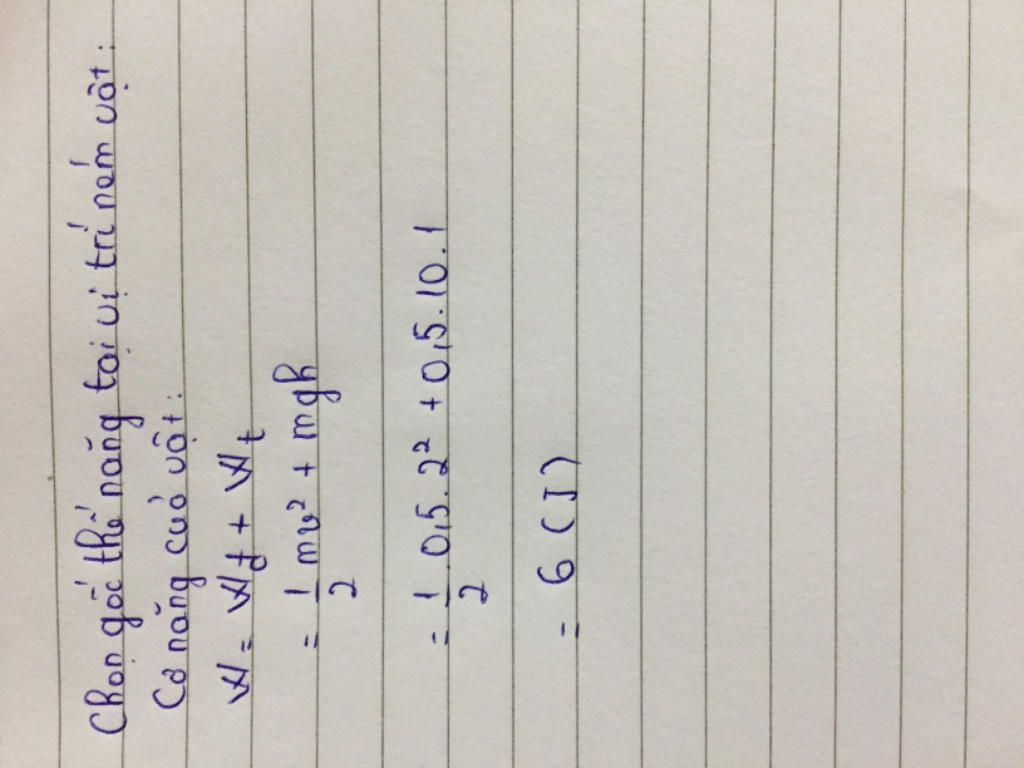 Chọn gốc thế năng tại vị trí ném vật:
Cơ năng của vật:
W = Wđ + Wt
= 1/2 mv² + mgh
= 1/2 0,5. 2² + 0,5. 10. 1
= 6 (J)